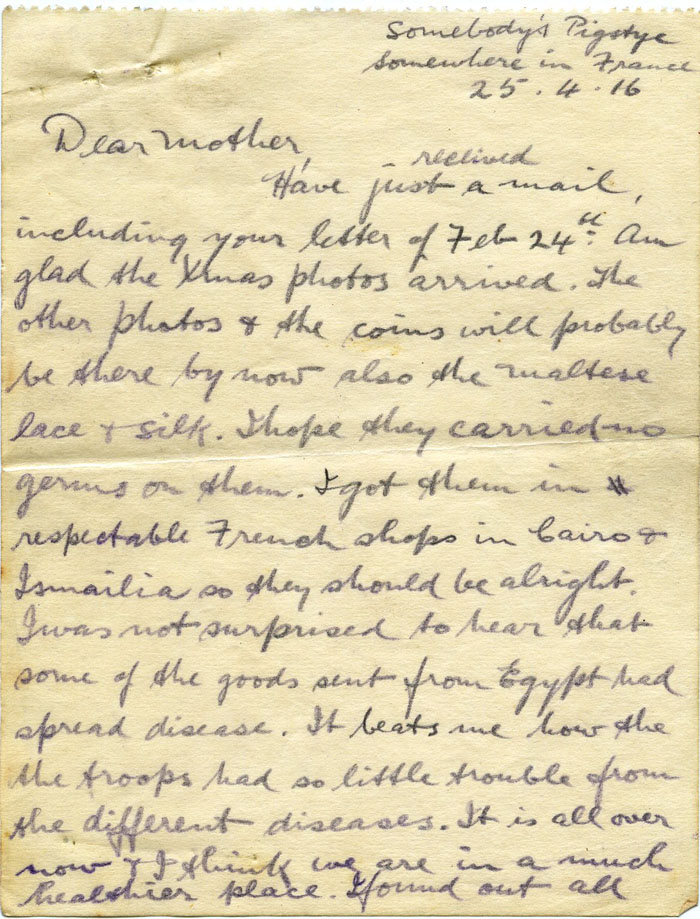 Somebody's Pigstye
Somewhere in France
25.4.16
Dear Mother,
received
Have just a mail,
including your letter of Feb 24th. Am
glad the Xmas photos arrived. The
other photos & the coins will probably
be there by now also the maltese
lace & silk. I hope they carried no
germs on them. I got them in
respectable French shops in Cairo &
Ismailia so they should be alright.
I was not surprised to hear that
some of the goods sent from Egypt had
spread disease. It beats me how the
the troops had so little trouble from
the different diseases. It is all over
now & I think we are in a much
healthier place. I found out all